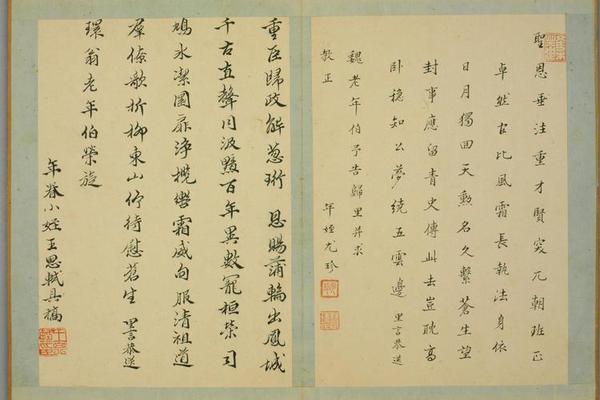 聖恩垂注重才賢突兀朝班正
卓然比風霜長執法身依
日月獨回天勲名久繫蒼生望
封事應留青史傳此去豈耽高
卧穩知公夢繞五雲邊 里言恭送
魏老年伯予告歸里并求
教正 年姪尤珍
重臣歸政解蔥珩 恩賜蒲輪出鳳城
千古直聲同汲黯百年異數寵桓榮司
鳩水潔圜扉淨攬轡霜威甸服清祖道
羣僚歌折柳東山佇待慰蒼生 里言恭送
環翁老年伯榮旋
年眷小姪王思軾具稿